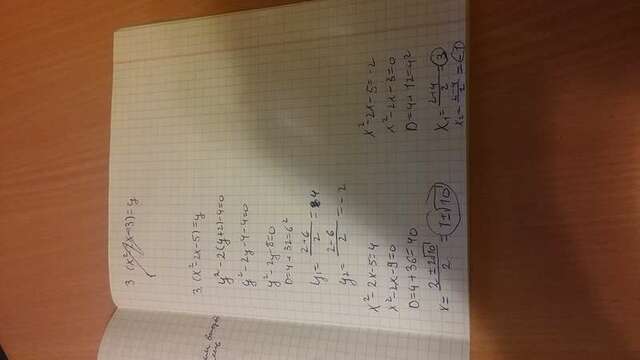 3 (x²-2x-3)=y
3. (x²-2x-5)=y
y²-2(y+2)-4=0
y²-2y-4-4=0
y²-2y-8=0
D=4+32=6²
y₁=(2+6)/2=4
y₂=(2-6)/2=-2
x²-2x-5=4
x²-2x-9=0
D=4+36=40
x=(2±2√10)/2=1±√10
x²-2x-5=-2
x²-2x-3=0
D=4+12=4²
x₁=(2+4)/2=3
x₂=(2-4)/2=-1